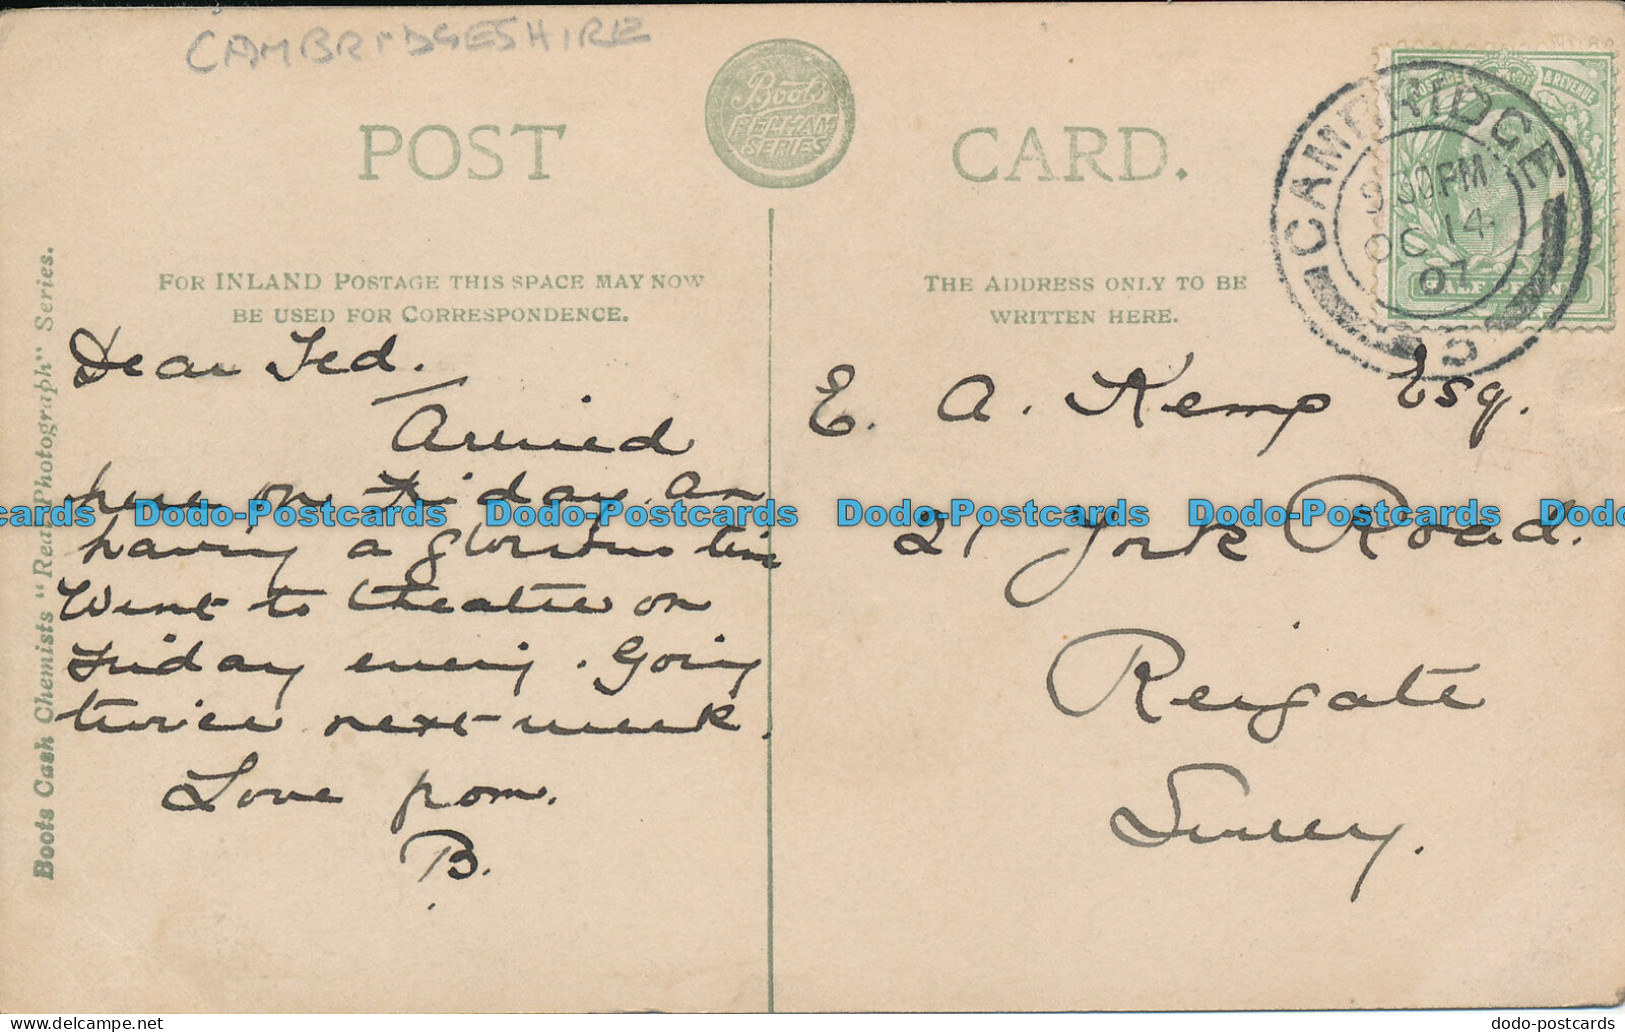 CAMBRIDGESHIRE
POST CARD.
Boots
PELHAM
SERIES
POSTAGE & REVENUE
CAMBRIDGE
30PM
OC 14
07
FOR INLAND POSTAGE THIS SPACE MAY NOW
BE USED FOR CORRESPONDENCE.
THE ADDRESS ONLY TO BE
WRITTEN HERE.
Boots Cash Chemists "Real Photograph" Series.
Dear Ted.
Arrived
here on Friday. Am
having a glorious time
Went to theatre on
Friday evening. Going
twice next week.
Love from.
B.
E. A. Kemp Esq.
21 York Road.
Reigate
Surrey.
Dodo-Postcards Dodo-Postcards Dodo-Postcards Dodo-Postcards
dodo-postcards